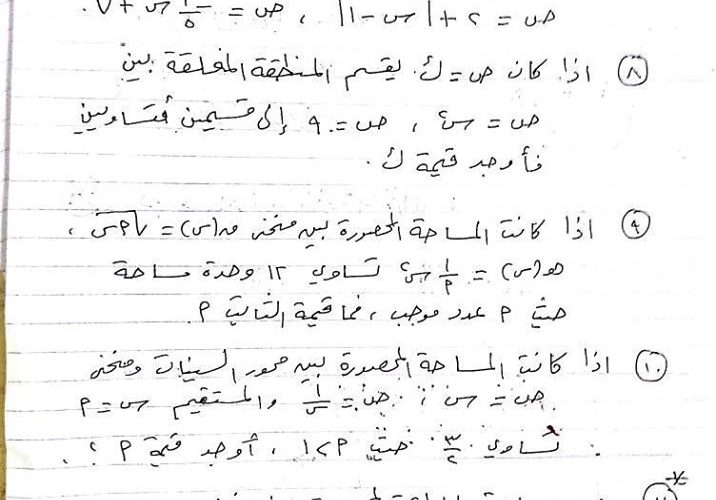 ص = ٢ + |س - ١| ، ص = ١/٥ س + ٧ .
٨ اذا كان ص = ك يقسم المنطقة المغلقة بين
ص = س٢ ، ص = ٩ إلى قسمين متساويين
فأوجد قيمة ك .
٩ اذا كانت المساحة المحصورة بين منحنى ق(س) = √م س ،
هـ(س) = ١/م س٢ تساوي ١٢ وحدة مساحة
حيث م عدد موجب ، فما قيمة الثابت م .
١٠ اذا كانت المساحة المحصورة بين محور السينات ومنحنى
ص = س ، ص = ١/س والمستقيم س = م
تساوي ٣/٢ حيث م > ١ ، أوجد قيمة م ؟ .